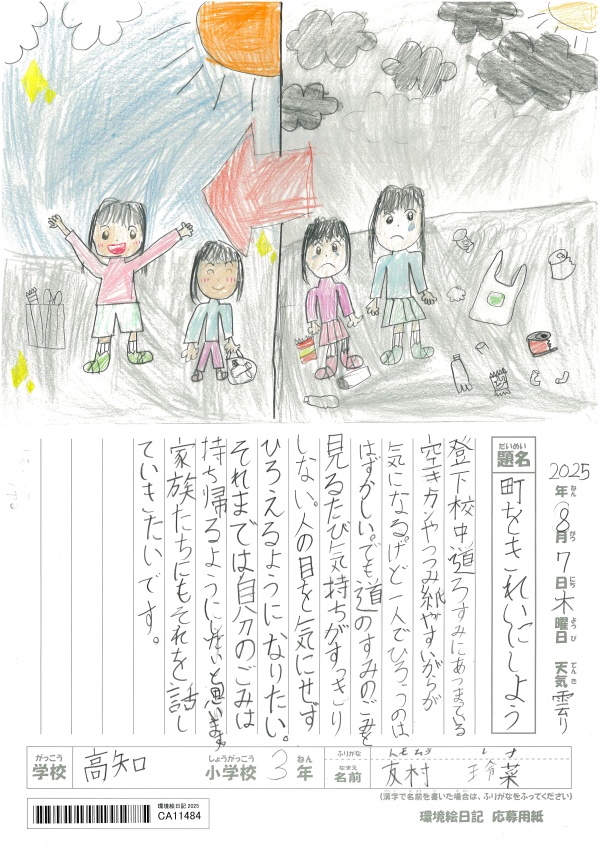 2025年8月7日木曜日 天気雲り
ねん がつ にち ようび てんき
だいめい
題名 町をきれいにしよう
登下校中道ろすみにあつまている
空きカンやつつみ紙やすいがらが
気になる。けど一人でひろうのは
はずかしい。でも道のすみのごみを
見るたび気持ちがすっきり
しない。人の目を気にせず
ひろえるようになりたい。
それまでは自分のごみは
持ち帰るようにしたいと思います。
家族たちにもそれを話し
ていきたいです。
がっこう しょうがっこう ねん
学校 高知 小学校 3年
ふりがな ともむら
なまえ
名前 友村 玲菜
(漢字で名前を書いた場合は、ふりがなをふってください)
環境絵日記 2025
CA11484
環境絵日記 応募用紙